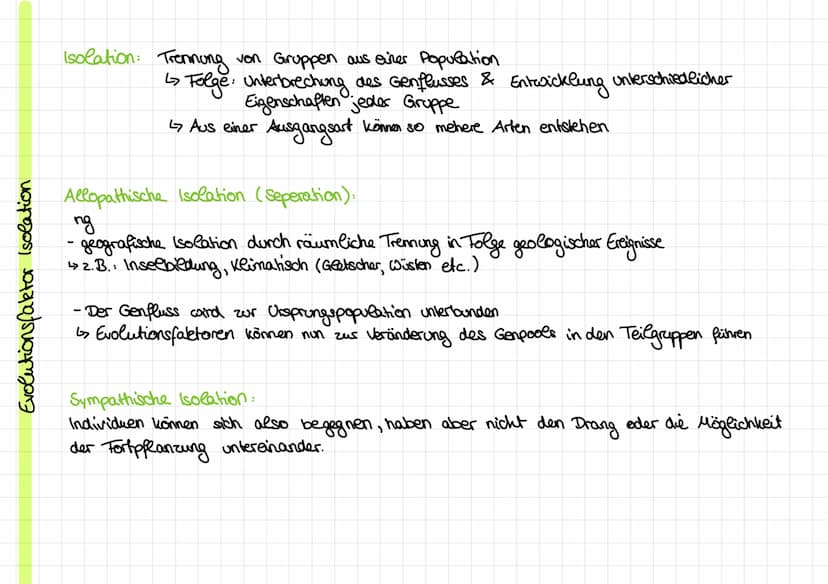 Evolutionsfaktor Isolation
Isolation: Trennung von Gruppen aus einer Population
↳ Folge: Unterbrechung des Genflusses & Entwicklung unterschiedlicher
Eigenschaften jeder Gruppe
↳ Aus einer Ausgangsart können so mehere Arten entstehen
Allopathische Isolation (Seperation):
ng
- geografische Isolation durch räumliche Trennung in Folge geologischer Ereignisse
↳ z.B.: Inselbildung, Klimatisch (Gletscher, Wüsten etc.)
- Der Genfluss wird zur Ursprungspopulation unterbunden
↳ Evolutionsfaktoren können nun zur Veränderung des Genpools in den Teilgruppen führen
Sympathische Isolation:
Individuen können sich also begegnen, haben aber nicht den Drang oder die Möglichkeit
der Fortpflanzung untereinander.